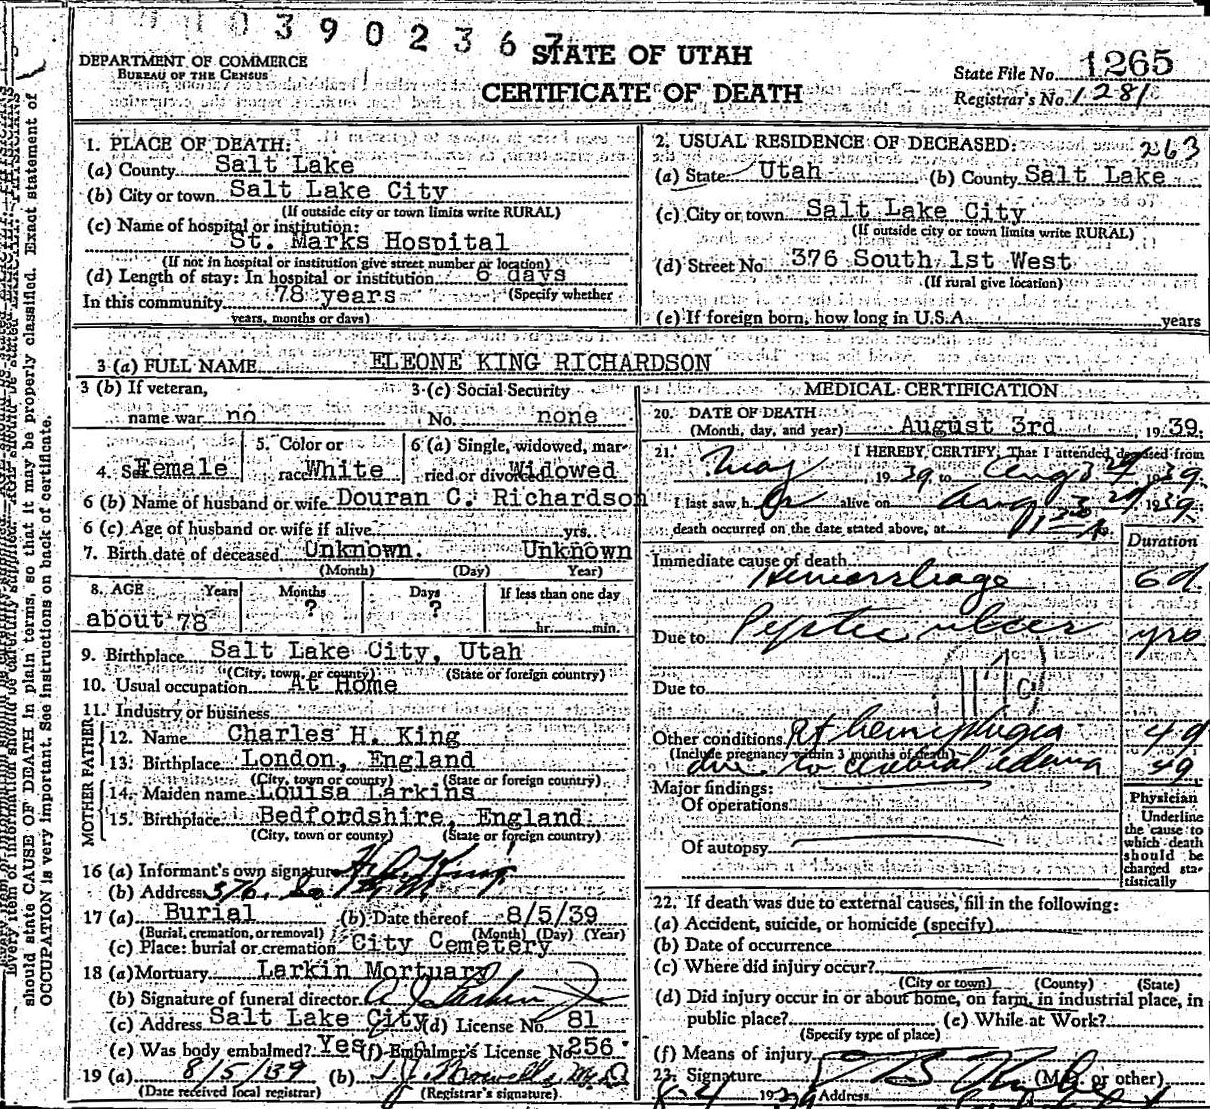 0 3 9 0 2 3 6 7
DEPARTMENT OF COMMERCE
BUREAU OF THE CENSUS
STATE OF UTAH
CERTIFICATE OF DEATH
State File No. 1265
Registrar's No. 1281
1. PLACE OF DEATH:
(a) County Salt Lake
(b) City or town Salt Lake City
(If outside city or town limits write RURAL)
(c) Name of hospital or institution:
St. Marks Hospital
(If not in hospital or institution give street number or location)
(d) Length of stay: In hospital or institution 6 days
In this community 78 years (Specify whether
years, months or days)
2. USUAL RESIDENCE OF DECEASED: 263
(a) State Utah (b) County Salt Lake
(c) City or town Salt Lake City
(If outside city or town limits write RURAL)
(d) Street No. 376 South 1st West
(If rural give location)
(e) If foreign born, how long in U.S.A. years
3 (a) FULL NAME ELEONE KING RICHARDSON
3 (b) If veteran,
name war no
3 (c) Social Security
No. none
4. Sex Female
5. Color or
race White
6 (a) Single, widowed, mar-
ried or divorced Widowed
6 (b) Name of husband or wife Douran C. Richardson
6 (c) Age of husband or wife if alive yrs.
7. Birth date of deceased Unknown. Unknown
(Month) (Day) Year)
8. AGE Years Months Days If less than one day
about 78 ? ? hr. min.
9. Birthplace Salt Lake City, Utah
(City, town, or county) (State or foreign country)
10. Usual occupation At Home
11. Industry or business
FATHER
12. Name Charles H. King
13. Birthplace London, England
(City, town or county) (State or foreign country)
MOTHER
14. Maiden name Louisa Larkins
15. Birthplace Bedfordshire, England
(City, town or county) (State or foreign country)
16 (a) Informant's own signature King
(b) Address 376 So
17 (a) Burial (b) Date thereof 8/5/39
(Burial, cremation, or removal) (Month) (Day) (Year)
(c) Place: burial or cremation City Cemetery
18 (a) Mortuary Larkin Mortuary
(b) Signature of funeral director A J Larkin Jr
(c) Address Salt Lake City (d) License No. 81
(e) Was body embalmed? Yes (f) Embalmer's License No. 256
19 (a) 8/5/39 (b)
(Date received local registrar) (Registrar's signature)
MEDICAL CERTIFICATION
20. DATE OF DEATH
(Month, day, and year) August 3rd, 1939.
21. I HEREBY CERTIFY, That I attended deceased from
May 1939, to Aug 3rd 1939
I last saw her alive on Aug 3rd 1939
death occurred on the date stated above, at
Duration
Immediate cause of death
Hemorrhage 6 d
Due to Peptic ulcer yrs
Due to
Other conditions Rt hemiplegia 4 d
(Include pregnancy within 3 months of death)
due to cerebral edema 4 d
Major findings:
Of operations
Of autopsy
Physician
Underline
the cause to
which death
should be
charged sta-
tistically
22. If death was due to external causes, fill in the following:
(a) Accident, suicide, or homicide (specify)
(b) Date of occurrence
(c) Where did injury occur?
(City or town) (County) (State)
(d) Did injury occur in or about home, on farm, in industrial place, in
public place? (e) While at Work?
(Specify type of place)
(f) Means of injury
23. Signature (M.D. or other)
8-4 1939 Address
should state CAUSE OF DEATH in plain terms, so that it may be properly classified. Exact statement of
OCCUPATION is very important. See instructions on back of certificate.